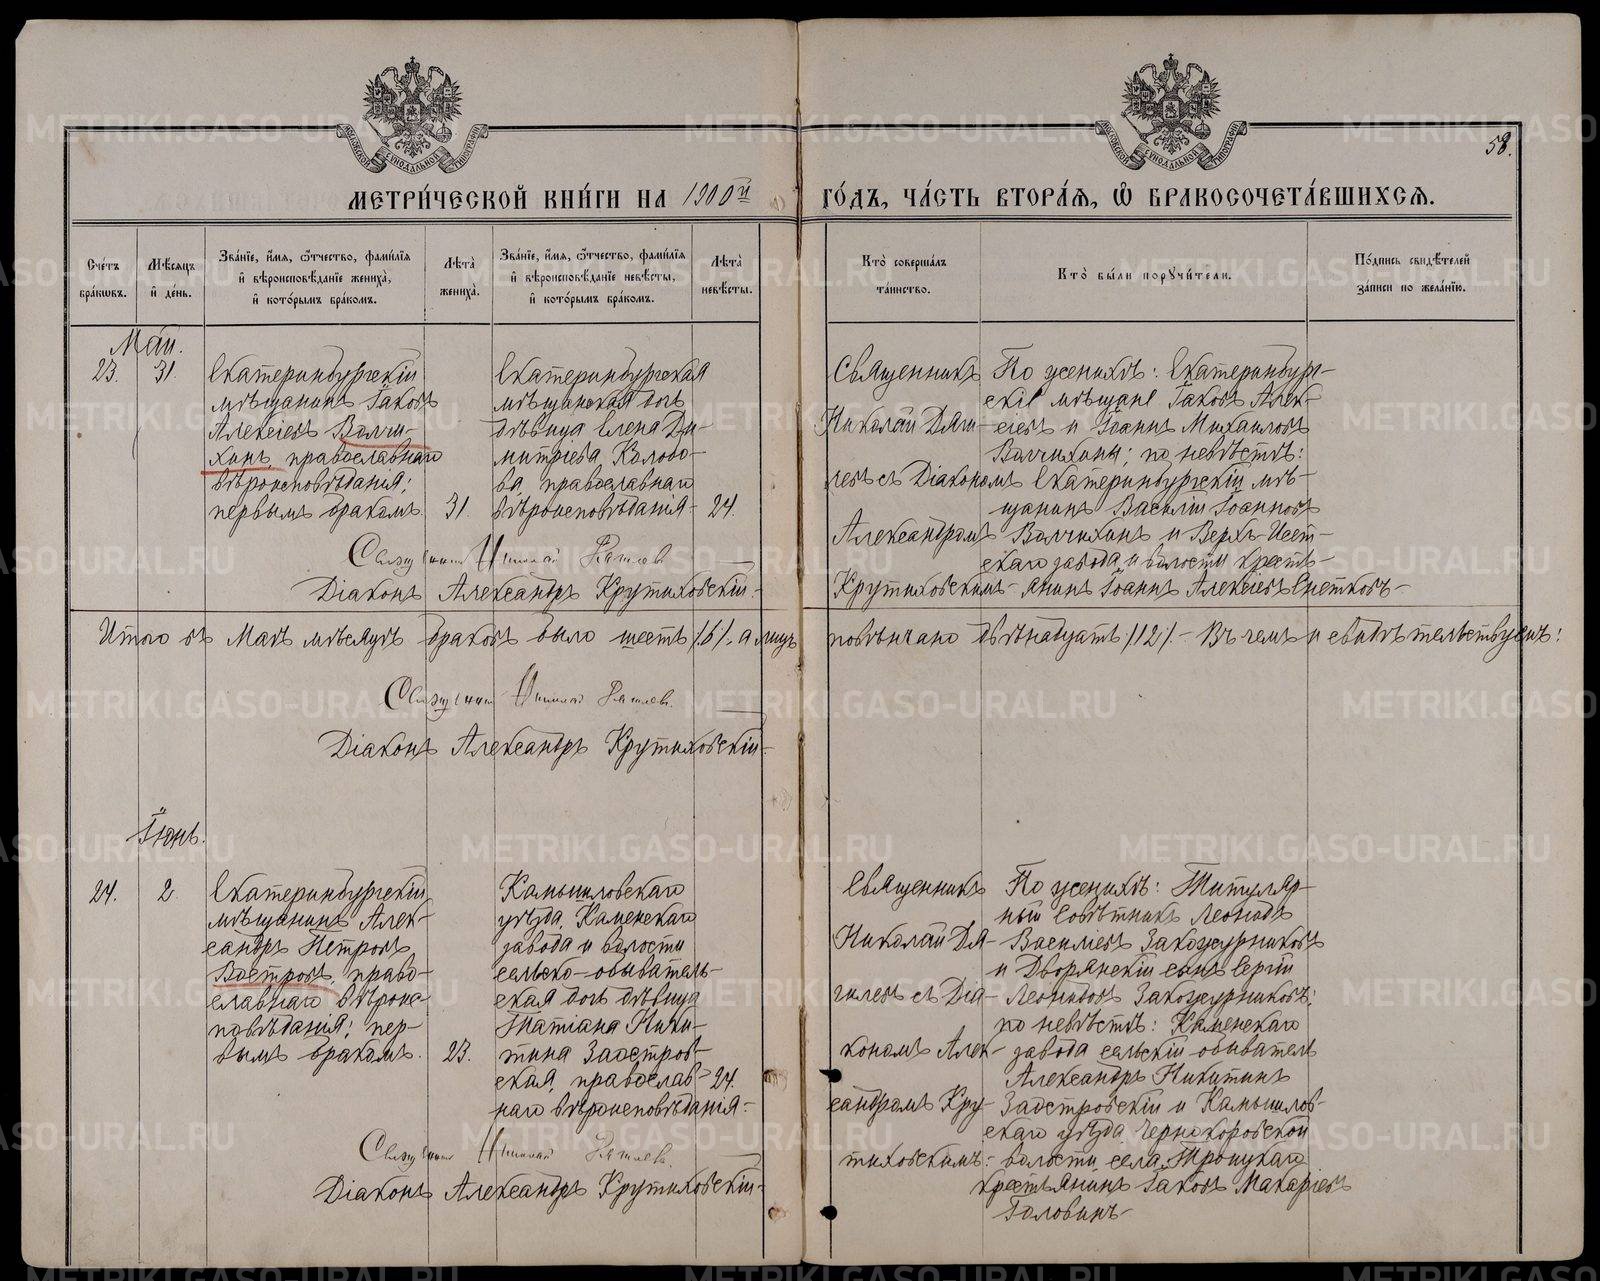 58.
МЕТРИ́ЧЕСКОЙ КНИ́ГИ НА 1900й ГО́ДЪ, ЧА́СТЬ ВТОРА́Я, Ѽ БРАКОСОЧЕТА́ВШИХСЯ.
Сче́тъ бра́ковъ.
Мѣ́сяцъ и҆ де́нь.
Зва́нїе, и҆́мя, ѻ҆́тчество, фами́лїя и҆ вѣроисповѣ́данїе жениха̀, и҆ кото́рымъ бра́комъ.
Лѣ́та жениха̀.
Зва́нїе, и҆́мя, ѻ҆́тчество, фами́лїя и҆ вѣроисповѣ́данїе невѣ́сты, и҆ кото́рымъ бра́комъ.
Лѣ́та невѣ́сты.
Кто̀ соверша́лъ та́инство.
Кто̀ бы́ли порꙋчи́тели.
По́дпись свидѣ́телей за́писи по жела́нїю.
Май.
23.
31.
Екатеринбургскій
мѣщанинъ Іаковъ
Алексіевъ Волчи-
хинъ, православнаго
вѣроисповѣданія;
первымъ бракомъ.
31.
Екатеринбургская
мѣщанская дочь
дѣвица Елена Ди-
митріева
ва православнаго
вѣроисповѣданія-
24.
Священникъ
Николай Дяги-
левъ съ Діакономъ
Александромъ
Крутиховскимъ-
По женихѣ: Екатеринбург-
скіе мѣщане Іаковъ Алек-
сіевъ и Іоаннъ Михаиловъ
Волчихины; по невѣстѣ:
Екатеринбургскій мѣ-
щанинъ Василій Іоанновъ
Волчихинъ и Верхъ-Исет-
скаго завода и волости кресть-
янинъ Іоаннъ Алексіевъ Снетковъ-
Священникъ Николай Дягилевъ
Діаконъ Александръ Крутиховскій-
Итого въ Маѣ мѣсяцѣ браковъ было шесть /6/, а лицъ повѣнчано двѣнадцать /12/.- Въ чемъ и свидѣтельствуемъ:
Священникъ Николай Дягилевъ.
Діаконъ Александръ Крутиховскій-
Іюнь.
24.
2.
Екатеринбургскій
мѣщанинъ Алек-
сандръ Петровъ
Востровъ, право-
славнаго вѣроис-
повѣданія; пер-
вымъ бракомъ.
23.
Камышловскаго
уѣзда, Каменскаго
завода и волости
сельско-обыватель-
ская дочь дѣвица
Татіана Ники-
тина Заостров-
ская, православ-
наго вѣроисповѣданія-
24.
Священникъ
Николай Дя-
гилевъ съ Діа-
кономъ Алек-
сандромъ Кру-
тиховскимъ:-
По женихѣ: Титуляр-
ный Совѣтникъ Леонидъ
Василіевъ Закожурниковъ
и Дворянскій сынъ Сергій
Леонидовъ Закожурниковъ;
по невѣстѣ: Каменскаго
завода сельскій обыватель
Александръ Никитинъ
Заостровскій и Камышлов-
скаго уѣзда Чернокоровской
волости, села Троицкаго
крестьянинъ Іаковъ Макаріевъ
Головинъ-
Священникъ Николай Дягилевъ.
Діаконъ Александръ Крутиховскій-
METRIKI.GASO-URAL.RU